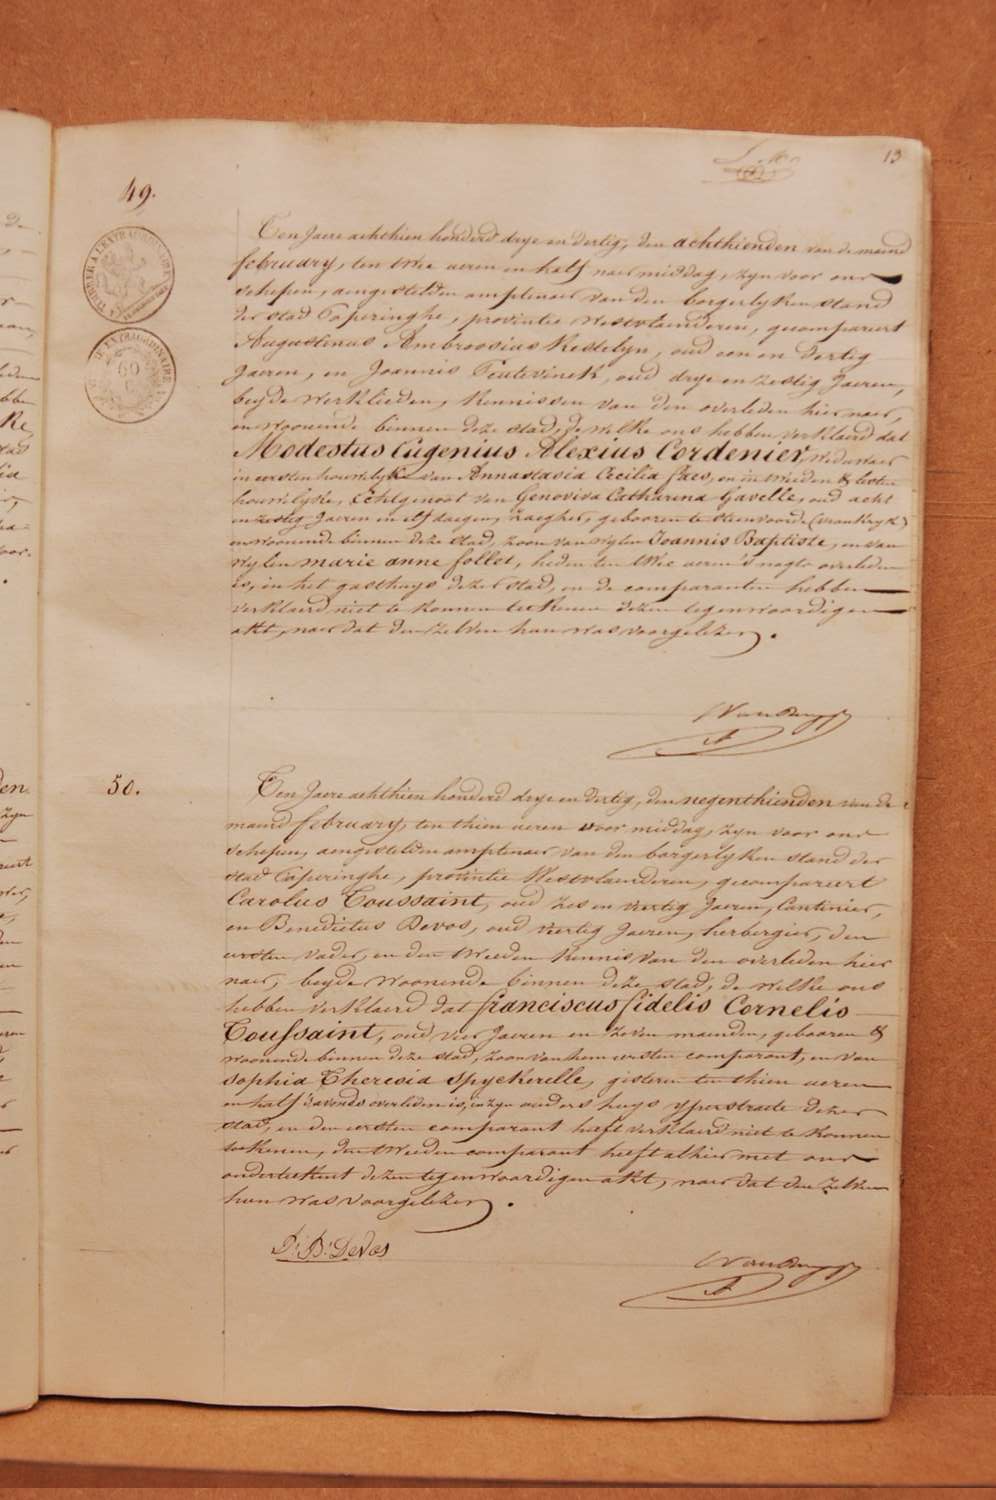 13
49.
TIMBRE A L'EXTRAORDINAIRE
Ten Jaere achthien honderd drye en dertig, den achthienden van de maend
february, ten twee ueren en half naer middag, zyn voor ons
schepen, aengestelden amptenaer van den borgerlyken stand
der stad Poperinghe, provintie Westvlaenderen, gecompareert
Augustinus Ambrosius Kestelyn, oud een en dertig
Jaeren, en Joannis Teutevinck, oud drye en zestig Jaeren,
beyde werklieden, kennissen van den overleden hier naer,
en woonende binnen deze stad, de welke ons hebben verklaerd dat
Modestus Eugenius Alexius Cordenier, weduwaer
in eersten houwelyke van Annastasia Cecilia faes, en in tweeden & lesten
houwelyke, Echtgenoot van Genoviva Catharina Gavelle, oud acht
en zestig Jaeren en elf daegen, zaegher, gebooren te Steenvoorde (vrankryk)
en woonende binnen deze stad, zoon van wylen Joannis Baptiste, en van
wylen marie anne follet, heden ten twee ueren 's nagts overleden
is, in het gasthuys dezer stad, en de comparanten hebben
verklaerd niet te konnen teekenen dezen tegenwoordigen
akt, naer dat den zelven hun was voorgelezen.
50.
Ten Jaere achthien honderd drye en dertig, den negenthienden van de
maend february, ten thien ueren voor middag, zyn voor ons
schepen, aengestelden amptenaer van den borgerlyken stand der
stad Poperinghe, provintie Westvlaenderen, gecompareert
Carolus Toussaint, oud zes en viertig Jaeren, Cantinier,
en Benedictus Devos, oud viertig Jaeren, herbergier, den
eersten vader, en den tweeden kennis van den overleden hier
naer, beyde woonende binnen deze stad, de welke ons
hebben verklaerd dat franciscus fidelis Cornelis
Toussaint, oud vier Jaeren en zeven maenden, gebooren &
woonende binnen deze stad, zoon van hem eersten comparant, en van
Sophia Theresia Spyckerelle, gisteren ten thien ueren
en half 's avonds overleden is, in zyn ouders huys yperstraete dezer
stad, en den eersten comparant heeft verklaerd niet te konnen
teekenen, den tweeden comparant heeft alhier met ons
onderteekent dezen tegenwoordigen akt, naer dat den zelven
hun was voorgelezen.
DeVos